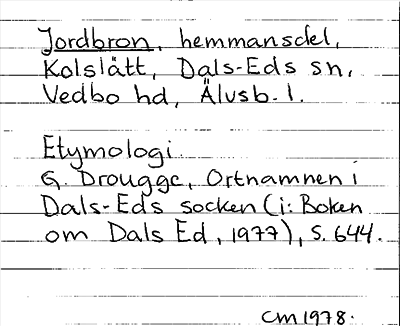 Jordbron, hemmansdel,
Kolslätt, Dals-Eds sn,
Vedbo hd, Älvsb. l.
Etymologi
G. Drougge, Ortnamnen i
Dals-Eds socken (i: Boken
om Dals Ed, 1977), s. 644.
CM 1978.